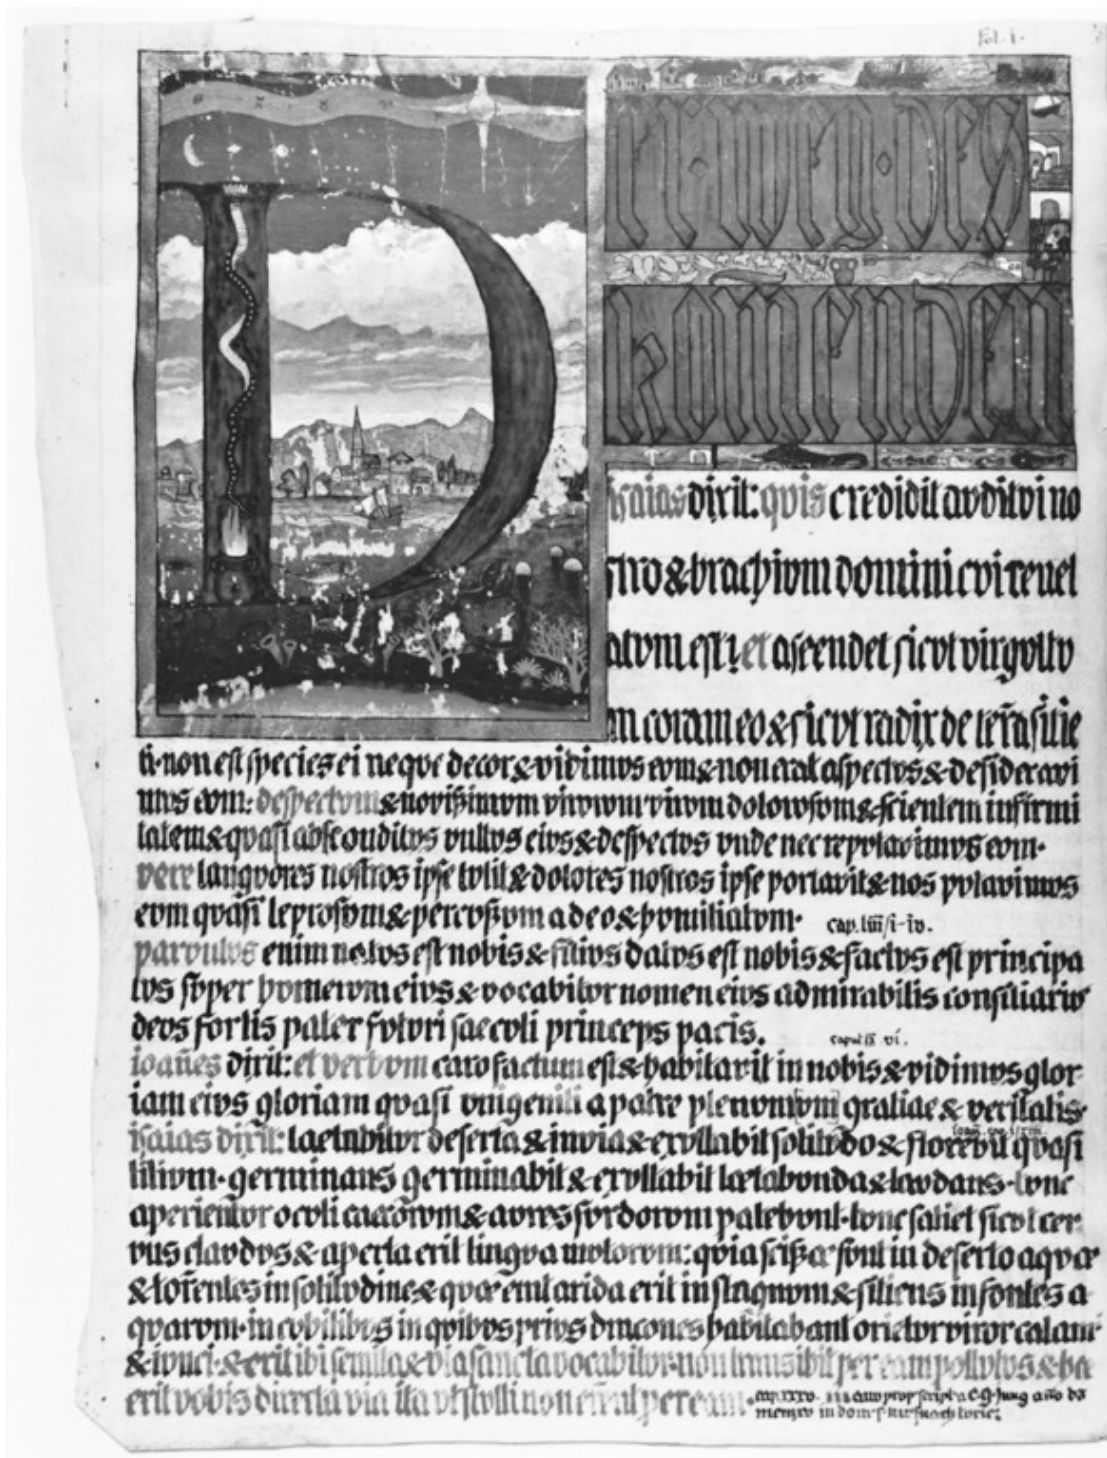 fol. i.
Der weg des
kommenden
isaias dixit: qvis credidit avditvi no
stro & brachivm domini cvi revel
atvm est? et ascendet sicvt virgvltv
m coram eo & sicvt radix de terra sitie
ti · non est species ei neqve decor & vidimvs evm & non erat aspectvs & desideravi
mvs evm: despectvm & novissimvm virorvm virvm dolorvm & scientem infirmi
tatem & qvasi absconditvs vvltvs eivs & despectvs vnde nec repvtavimvs evm ·
vere langvores nostros ipse tvlit & dolores nostros ipse portavit & nos pvtavimvs
evm qvasi leprosvm & percvssvm a deo & hvmiliatvm · cap. liii/i-iv.
parvvlvs enim natvs est nobis & filivs datvs est nobis & factvs est principa
tvs svper hvmervm eivs & vocabitvr nomen eivs admirabilis consiliarivs
devs fortis pater fvtvri saecvli princeps pacis. capvt ix vi.
ioañes dixit: et verbvm caro factvm est & habitavit in nobis & vidimvs glor
iam eivs gloriam qvasi vnigeniti a patre plenvm gratiae & veritatis ·
isaias dixit: laetabitvr deserta & invia & exvltabit solitvdo & florebit qvasi
lilivm · germinans germinabit & exvltabit laetabvnda & lavdans · tvnc
aperientvr ocvli caecorvm & avres svrdorvm patebvnt · tvnc saliet sicvt cer
vvs clavdvs & aperta erit lingva mvtorvm: qvia scissae svnt in deserto aqvae
& torrentes in solitvdine & qvae erat arida erit in stagnvm & sitiens in fontes a
qvarvm · in cvbilibvs in qvibvs privs dracones habitabant orietvr viror calami
& ivnci · & erit ibi semita & via sancta vocabitvr · non transibit per eam pollvtvs & haec
erit vobis directa via ita vt stvlti non errent per eam. cap. xxxv.